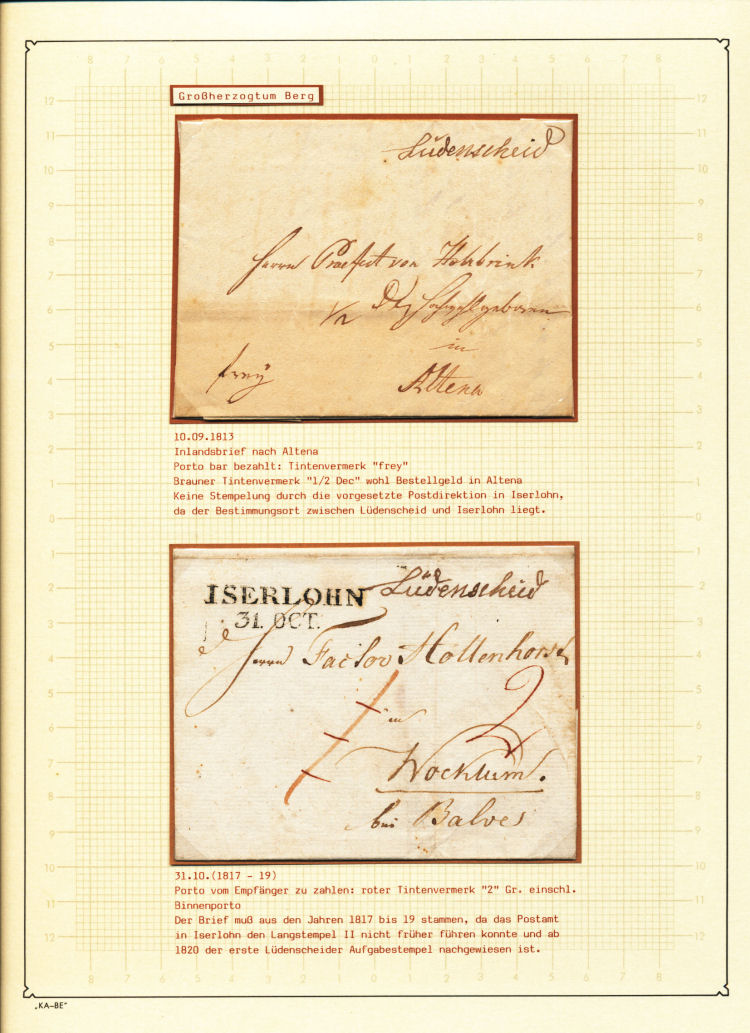 Großherzogtum Berg
Lüdenscheid
Herrn Praefect von Holtzbrink
1/2
in
frey
Altena
10.09.1813
Inlandsbrief nach Altena
Porto bar bezahlt: Tintenvermerk "frey"
Brauner Tintenvermerk "1/2 Dec" wohl Bestellgeld in Altena
Keine Stempelung durch die vorgesetzte Postdirektion in Iserlohn,
da der Bestimmungsort zwischen Lüdenscheid und Iserlohn liegt.
ISERLOHN Lüdenscheid
31. OCT.
Herrn Factor Hollenhorst
in 2
Wocklum.
bei Balves
31.10.(1817 - 19)
Porto vom Empfänger zu zahlen: roter Tintenvermerk "2" Gr. einschl.
Binnenporto
Der Brief muß aus den Jahren 1817 bis 19 stammen, da das Postamt
in Iserlohn den Langstempel II nicht früher führen konnte und ab
1820 der erste Lüdenscheider Aufgabestempel nachgewiesen ist.
„KA-BE"